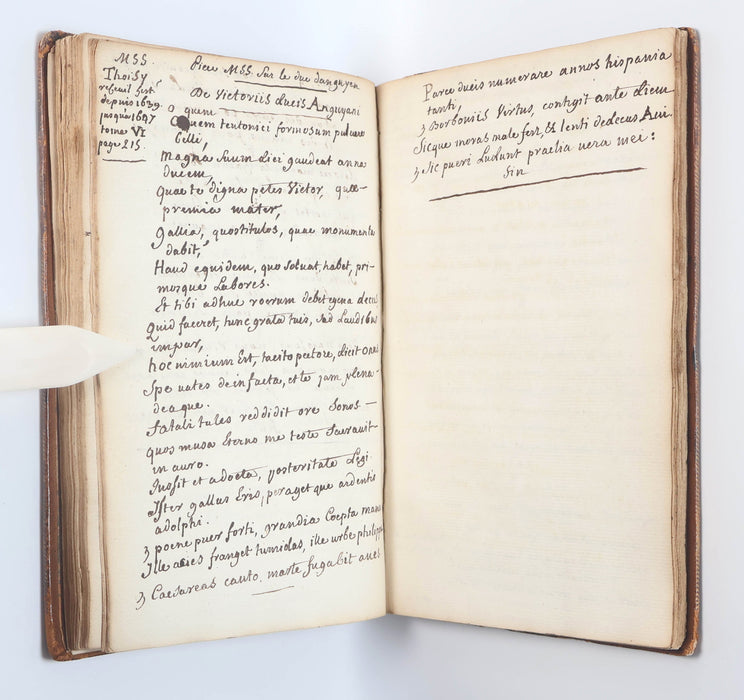 MSS.
Thoisy
recueil fest
depuis 1639.
jusqua 1647
tome VI
page 215.
Piece MSS. sur le duc danguyen
De Victoriis Ducis Anguyani
O quem
Quem teutonici formosum pulvere
belli,
magna suum dici gaudeat anna
ducem,
Quae te digna petes Victor, quae
premia mater,
Gallia, quos titulos, quae monumenta
dabit,
Haud equidem, quo solvat, habet, pri-
mosque Labores.
Et tibi adhuc rocrum debet egena decus
Quid faceret, tunc grata tuis, sed Laudibus
impar,
hoc nimium Est, tacito pectore, dicit
Spe vates de infacta, et te jam plena
deaque.
Fatali tales reddidit ore sonos
quos musa Eterno me teste sacravit
in auro.
Jussit et a docta, posteritate Legi
Ister gallus Erit, peraget que ardentis
adolphi.
3 poene puer forti, grandia Coepta manu
Ille acies franget tumidas, ille urbe philipp
3 Caesareas cauto marte fugabit aves
Parce ducis numerare annos hispania
tanti,
3 Borboniis Virtus, contigit ante diem
Sicque moras male fert, & lenti dedecus Aevi
3 Sic pueri Ludunt praelia vera mei:
fin